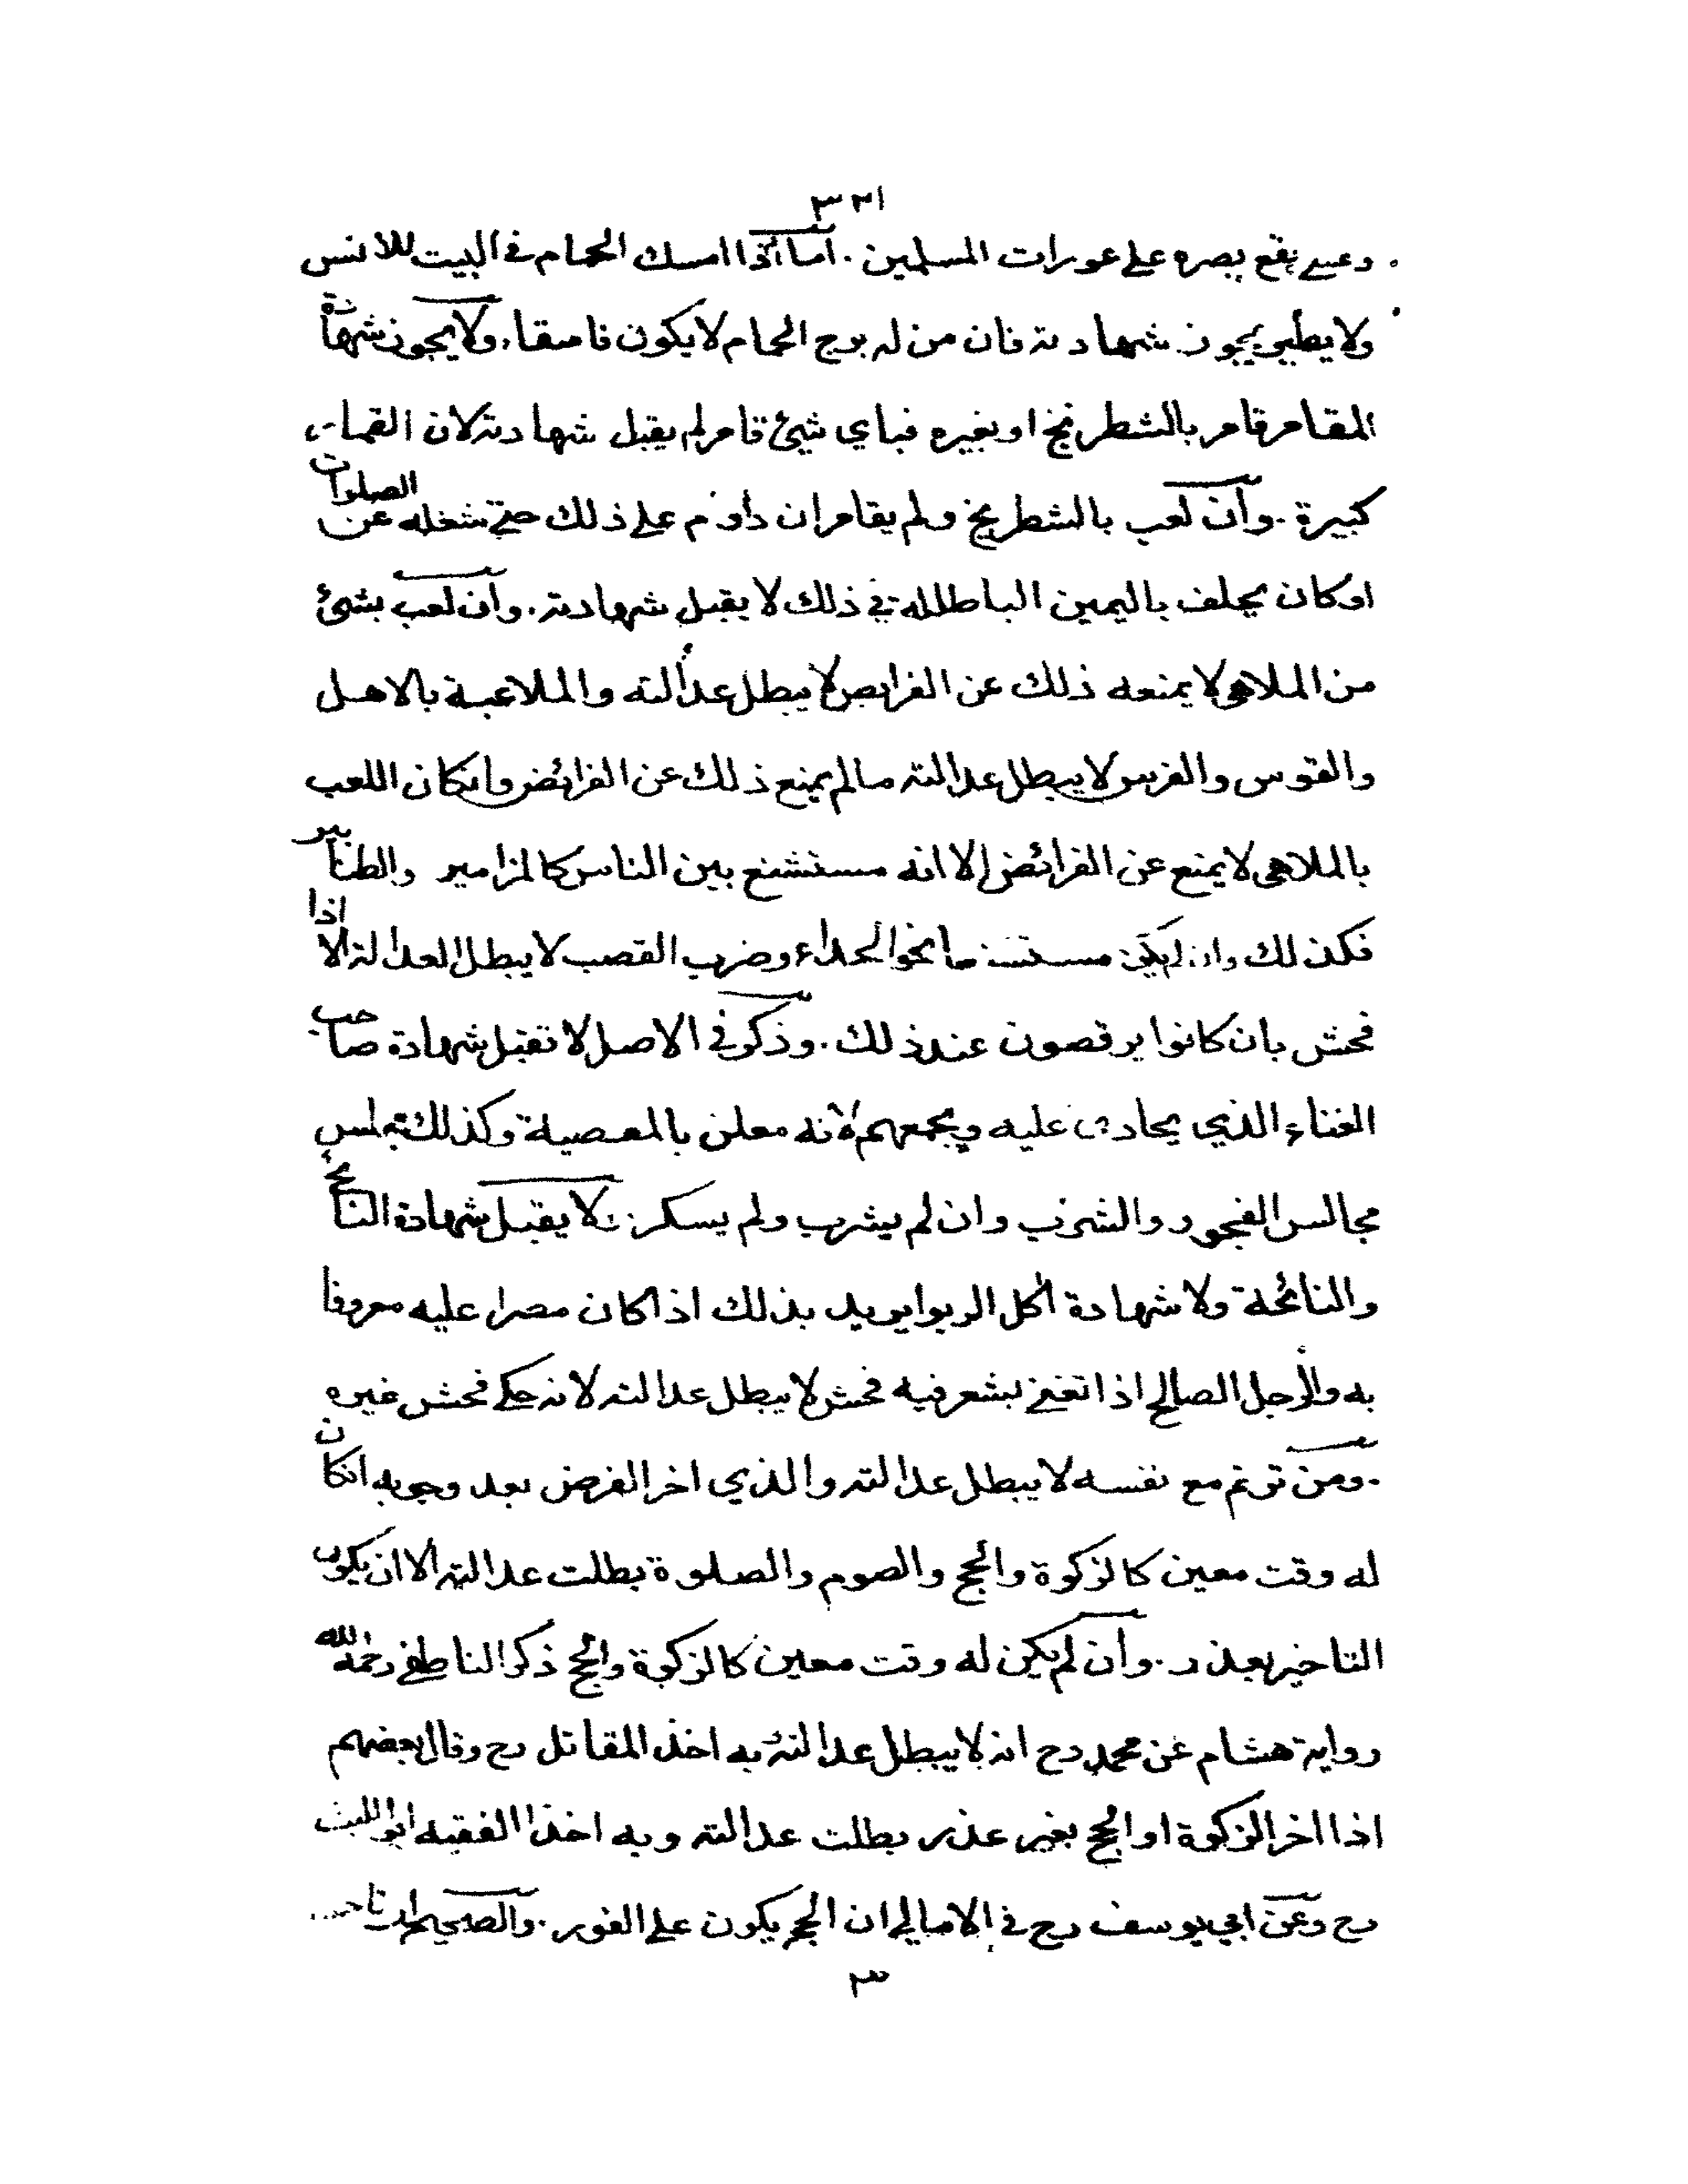 ٣٢١
وعسى يقع بصره على عورات المسلمين . اما اذا امسك الحمام في البيت للانس
ولا يطير يجوز شهادته فان من له برج الحمام لا يكون فاسقا . ولا يجوز شهادة
المقامر قامر بالشطرنج او بغيره فباي شئ قامر لم يقبل شهادته لان القمار
كبيرة . وان لعب بالشطرنج ولم يقامر ان داوم على ذلك حتى شغله عن الصلوات
اوكان يحلف باليمين الباطلة في ذلك لا يقبل شهادته . وان لعب بشئ
من الملاهي لا يمنعه ذلك عن الفرايض لا يبطل عدالته والملاعبة بالاهل
والقوس والفرس لا يبطل عدالته مالم يمنع ذلك عن الفرائض وانكان اللعب
بالملاهي لا يمنع عن الفرائض الا انه مستشنع بين الناس كالمزامير والطنابير
فكذلك وان لم يكن مستشنعا نحو الحداء وضرب القصب لا يبطل العدالة الا اذا
فحش بان كانوا يرقصون عند ذلك . وذكر في الاصل لا تقبل شهادة صاحب
الغناء الذي يحادن عليه ويجمعهم لانه معلن بالمعصية وكذلك مجلس
مجالس الفجور والشرب وان لم يشرب ولم يسكر . لا يقبل شهادة النائح
والنائحة ولا شهادة آكل الربوا يريد بذلك اذا كان مصرا عليه معروفا
به والرجل الصالح اذا تغنى بشعر فيه فحش لا يبطل عدالته لانه حكى فحش غيره
. ومن ترنم مع نفسه لا يبطل عدالته والذي اخر الفرض بعد وجوبه انكان
له وقت معين كالزكوة والحج والصوم والصلوة بطلت عدالته الا ان يكون
التاخير بعذر . وان لم يكن له وقت معين كالزكوة والحج ذكر الناطفي رحمه الله
رواية هشام عن محمد رح انه لا يبطل عدالته به اخذ المقاتل رح وقال بعضهم
اذا اخر الزكوة او الحج بغير عذر بطلت عدالته وبه اخذ الفقيه ابو الليث
رح وعن ابي يوسف رح في الامالي ان الحج يكون على الفور . والصحيح ان
٣